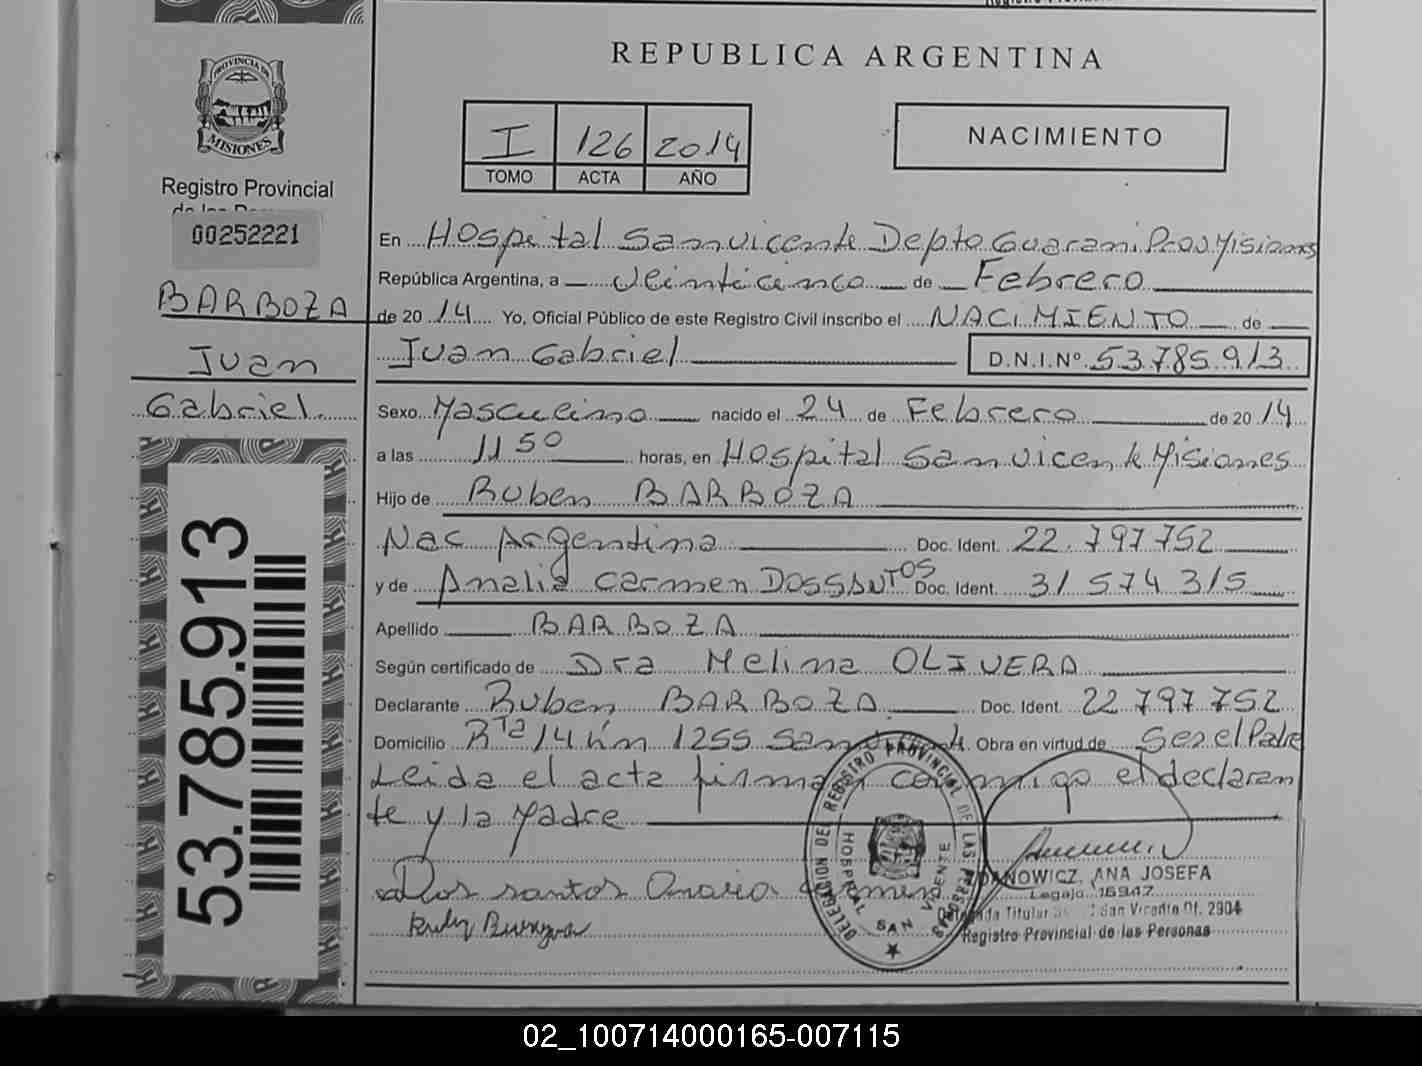 REPUBLICA ARGENTINA
PROVINCIA DE
MISIONES
Registro Provincial
00252221
BARBOZA
Juan
Gabriel
53.785.913
I 126 2014
TOMO ACTA AÑO
NACIMIENTO
En Hospital San vicente Depto Guarani Prov Misiones
República Argentina, a veinticinco de Febrero
de 2014 Yo, Oficial Público de este Registro Civil inscribo el NACIMIENTO de
Juan Gabriel D.N.I.Nº 53.785.913
Sexo Masculino nacido el 24 de Febrero de 2014
a las 11 50 horas, en Hospital San vicente Misiones
Hijo de Ruben BARBOZA
Nac Argentina Doc. Ident. 22.797.752
y de Analia Carmen DOSSANTOS Doc. Ident. 31 574 315
Apellido BARBOZA
Según certificado de Dra Melina OLIVERA
Declarante Ruben BARBOZA Doc. Ident. 22 797 752
Domicilio Rta 14 km 1255 San Obra en virtud de Ser el Padre
Leida el acta firman conmigo el declaran
te y la Madre
Dos santos
DELEGACION DEL REGISTRO PROVINCIAL DE LAS PERSONAS
HOSPITAL SAN VICENTE
ANA JOSEFA
Legajo 16947
Titular San Vicente Of. 2904
Registro Provincial de las Personas
02_100714000165-007115